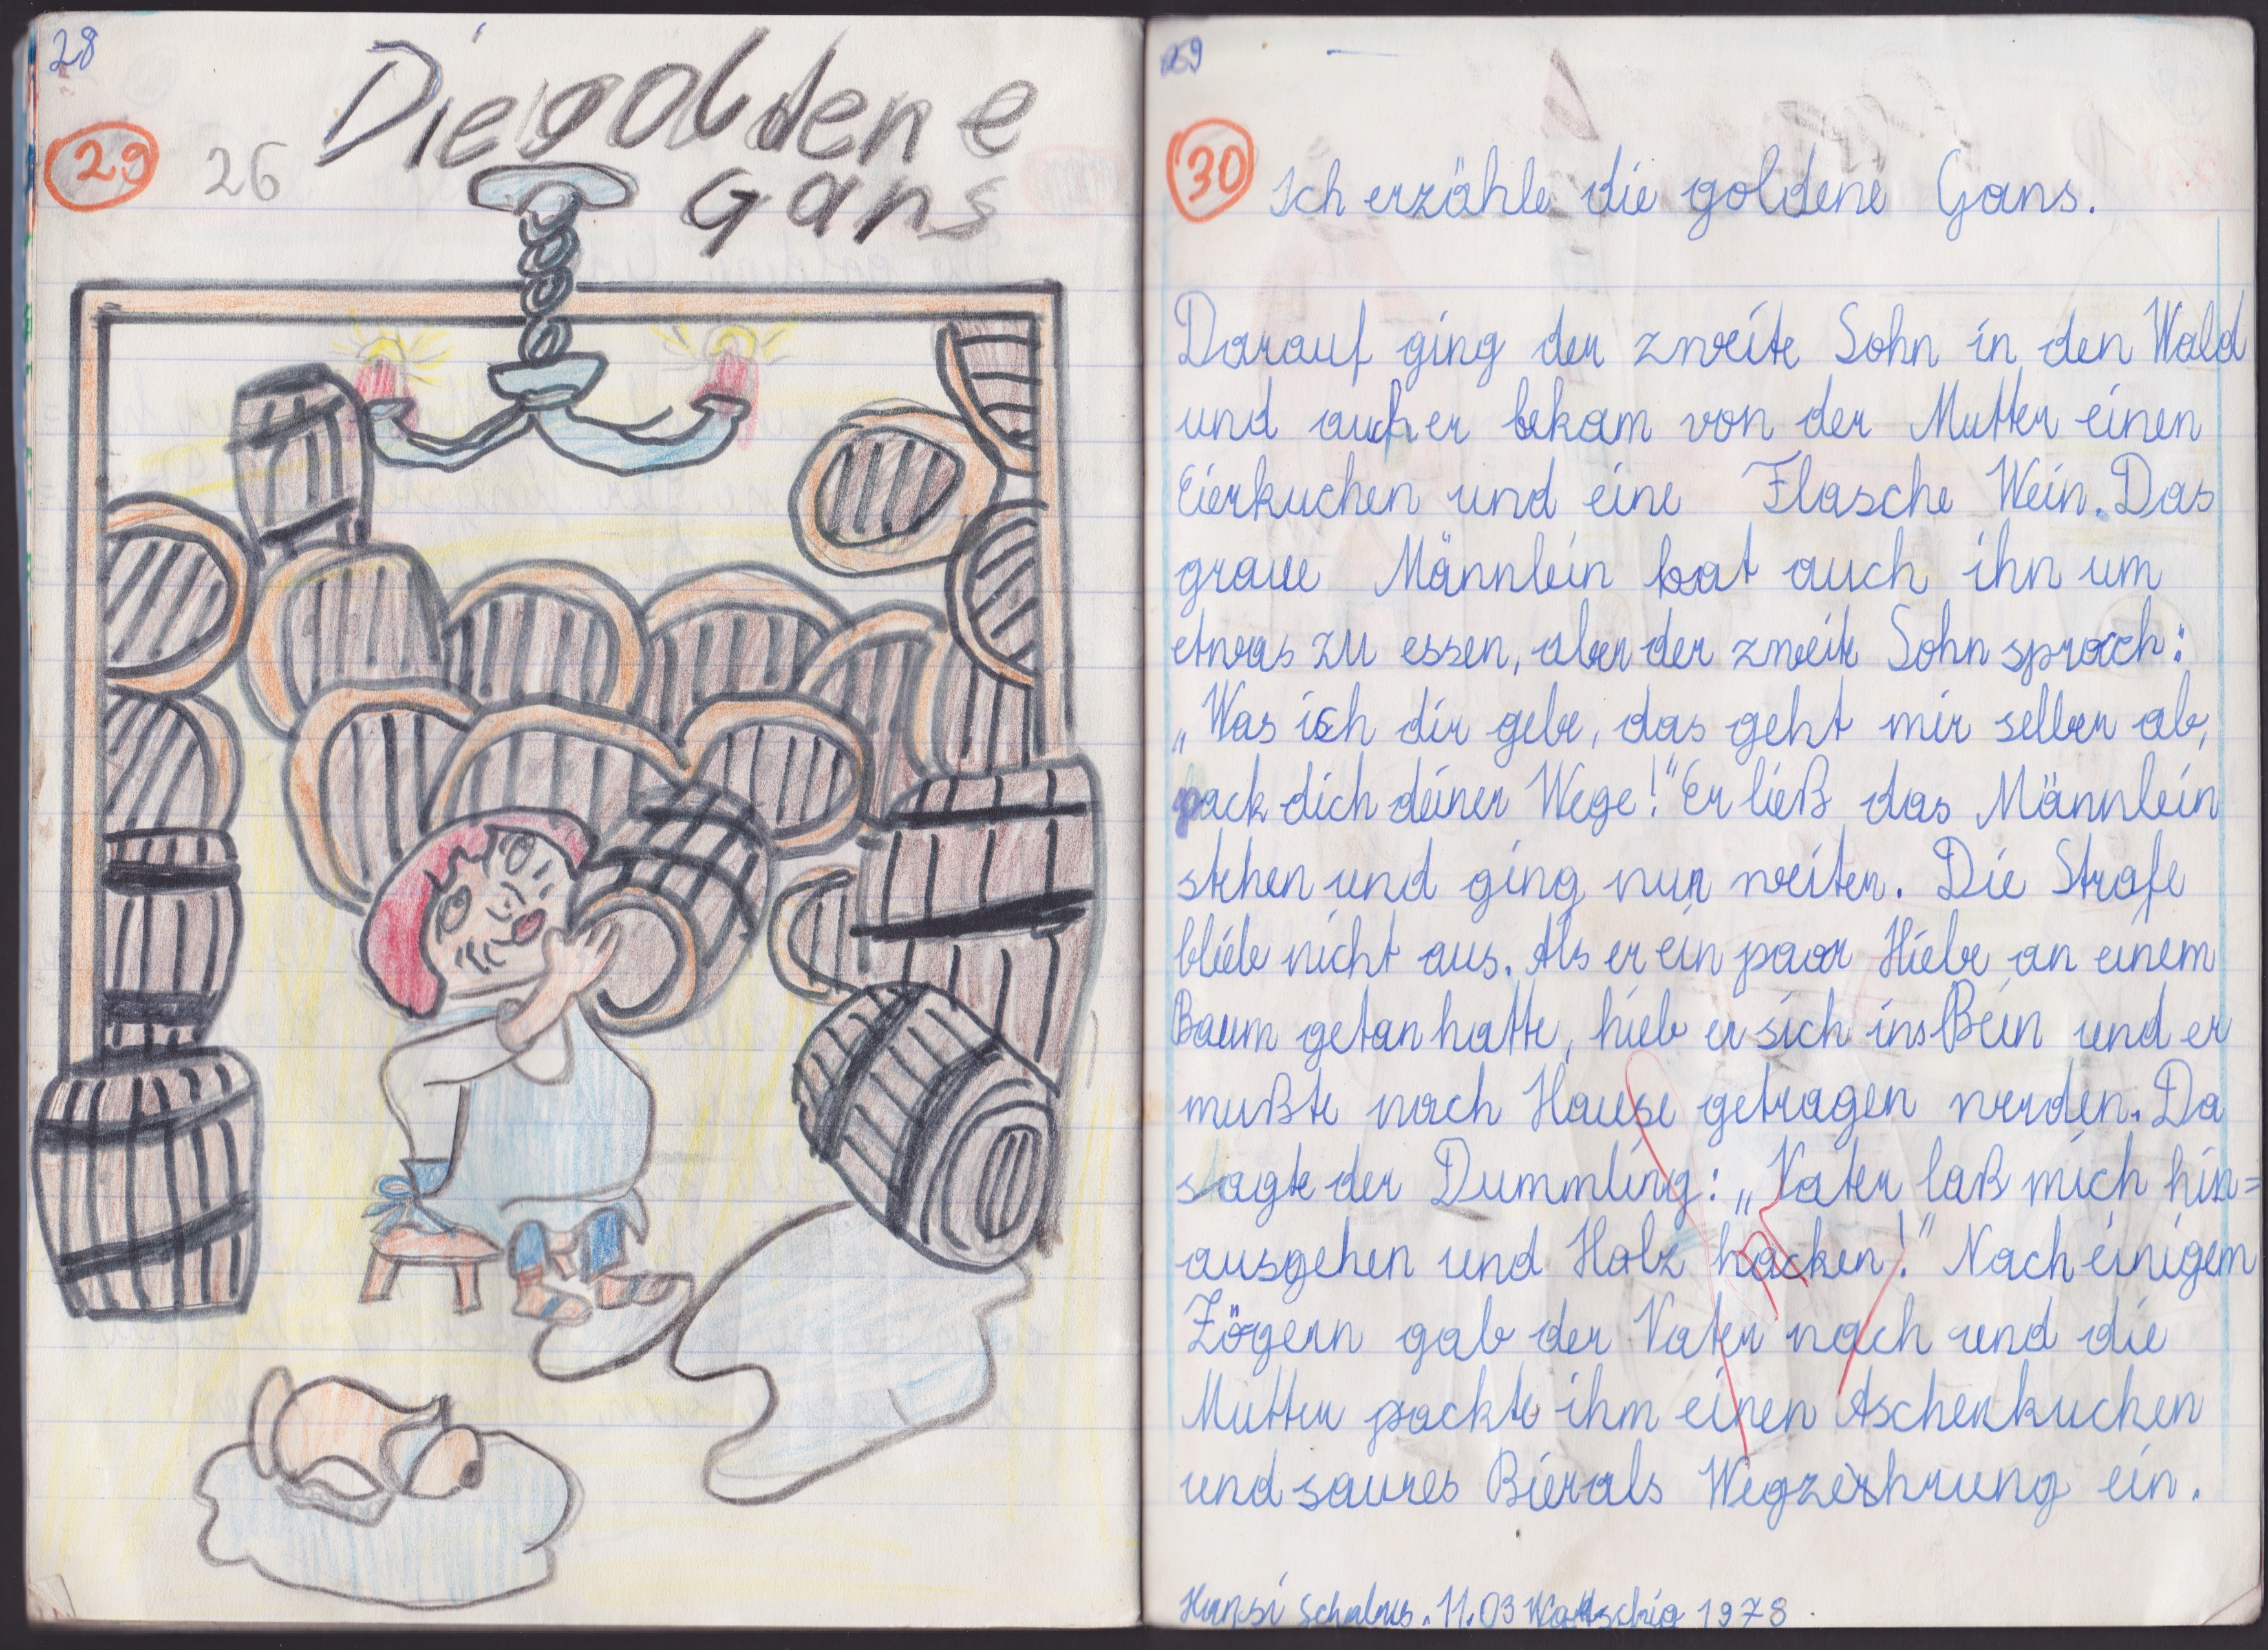 28
Die goldene
Gans
29
26
29
30
Ich erzähle die goldene Gans.
Darauf ging der zweite Sohn in den Wald
und auch er bekam von der Mutter einen
Eierkuchen und eine Flasche Wein. Das
graue Männlein bat auch ihn um
etwas zu essen, aber der zweite Sohn sprach:
„Was ich dir gebe, das geht mir selber ab,
pack dich deiner Wege!" Er ließ das Männlein
stehen und ging nur weiter. Die Strafe
blieb nicht aus. Als er ein paar Hiebe an einem
Baum getan hatte, hieb er sich ins Bein und er
mußte nach Hause getragen werden. Da
sagte der Dummling: „Vater laß mich hin=
ausgehen und Holz hacken!" Nach einigem
Zögern gab der Vater nach und die
Mutter packte ihm einen Aschenkuchen
und saures Bier als Wegzehrung ein.
Hansi Schabus. 11.03 Watschig 1978